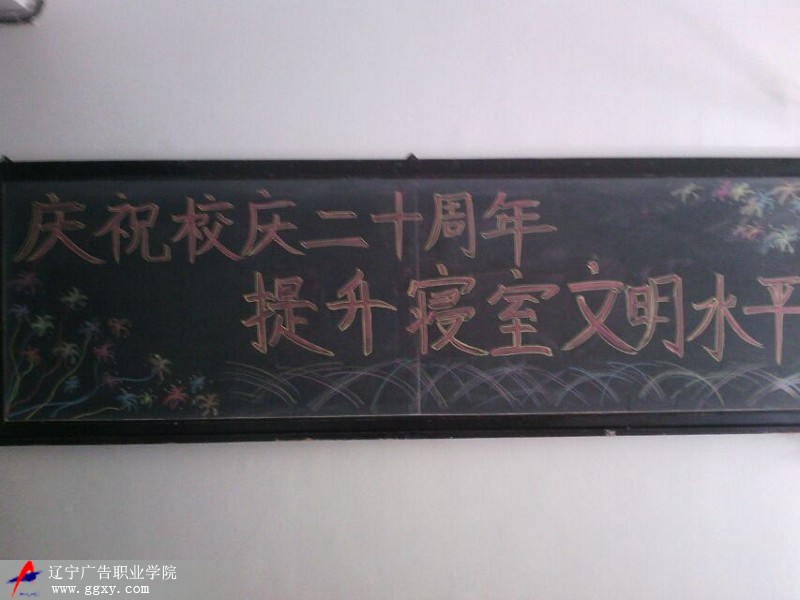 庆祝校庆二十周年
提升寝室文明水平
辽宁广告职业学院
www.ggxy.com